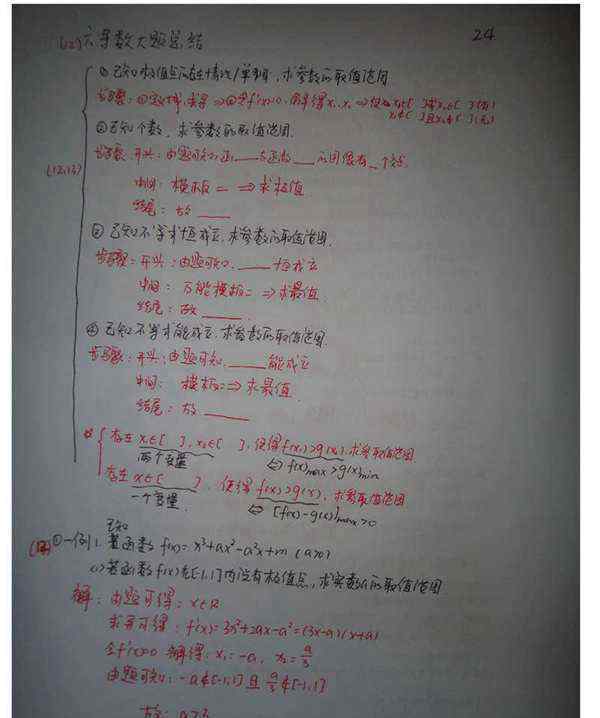 24
(2)六 导数大题总结
① 已知极值点所在情况/单调,求参数的取值范围
② 已知个数,求参数的取值范围.
步骤:开头:由题可知,函__与函数__的图像有_个交点
(12,13)
中间:模板二 ⇒求极值
结尾:故____
③ 已知不等式恒成立,求参数的取值范围.
步骤:开头:由题可知,____恒成立
中间:万能模板二 ⇒求最值
结尾:故____.
④ 已知不等式能成立,求参数的取值范围.
步骤:开头:由题可知,____能成立
中间:模板二⇒求最值
结尾:故____
存在x₁∈[ ],x₂∈[ ],使得f(x₁)>g(x₂),求参取值范围
两个变量 ⇔f(x)max>g(x)min
存在x∈[ ],使得f(x)>g(x),求参取值范围
一个变量 ⇔[f(x)-g(x)]max>0
已知
①一例1.若函数f(x)=x³+ax²-a²x+m (a>0)
(1)若函数f(x)在[-1,1]内没有极值点,求实数a的取值范围
解:由题可得:x∈R
求导可得:f'(x)=3x²+2ax-a²=(3x-a)(x+a)
令f'(x)=0 解得:x₁=-a, x₂=a/3
由题可知:-a∉[-1,1]且a/3∉[-1,1]
故:a>3